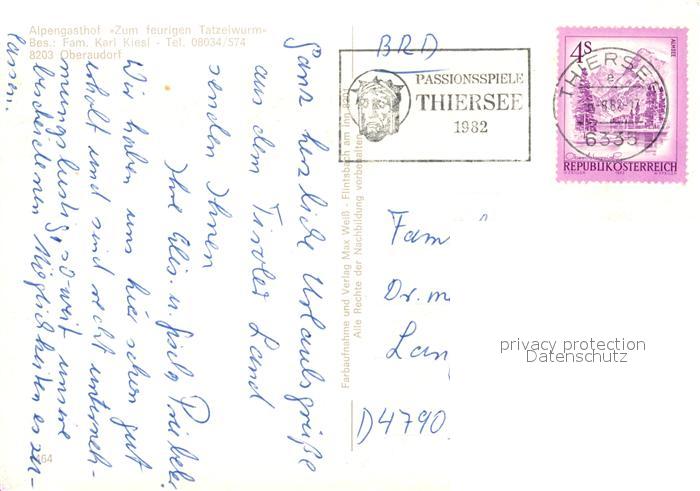 Alpengasthof »Zum feurigen Tatzelwurm«
Bes.: Fam. Karl Kiesl - Tel. 08034/574
8203 Oberaudorf
Ganz herzliche Urlaubsgrüße
aus dem Tiroler Land
senden Ihnen
Ihre Elis. u. Gisela
Wir haben uns hier schon gut
erholt und sind recht unterneh-
mungslustig, so-weit unsere
bescheidenen Möglichkeiten es zu-
lassen.
64
Farbaufnahme und Verlag Max Weiß - Flintsbach am Inn
Alle Rechte der Nachbildung vorbehalten
BRD
PASSIONSSPIELE
THIERSEE
1982
THIERSEE
e
82
6335
4S
ALMSEE
REPUBLIK ÖSTERREICH
Fam
Dr. m
Lan
D4790
privacy protection
Datenschutz